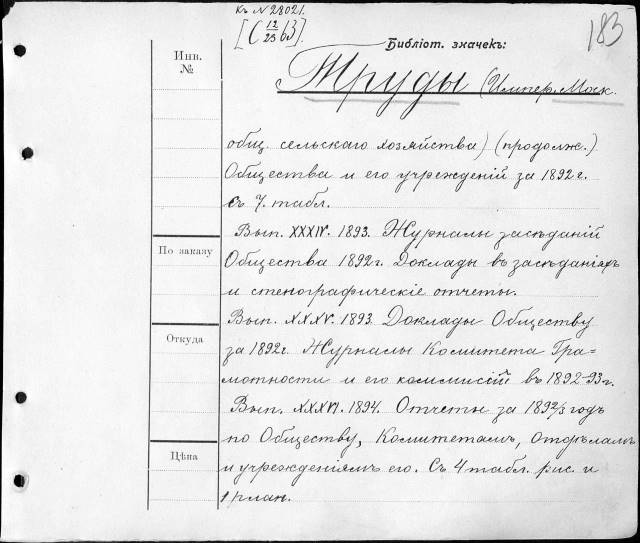 Къ № 28021.
[С 12/23 б3].
183
Библіот. значекъ:
Инв.
№
Труды (Импер. Моск.
общ. сельскаго хозяйства) (продолж.)
Общества и его учрежденій за 1892 г.
съ 7. табл.
Вып. XXXIV. 1893. Журналы засѣданій
По заказу
Общества 1892 г. Доклады въ засѣданіяхъ
и стенографическіе отчеты.
Вып. XXXV. 1893. Доклады Обществу
Откуда
за 1892 г. Журналы Комитета Гра-
мотности и его коммисій въ 1892-93 г.
Вып. XXXVI. 1894. Отчеты за 1892/3 годъ
по Обществу, Комитетамъ, Отдѣламъ
Цѣна
и учрежденіямъ его. Съ 4 табл. рис. и
1 план.